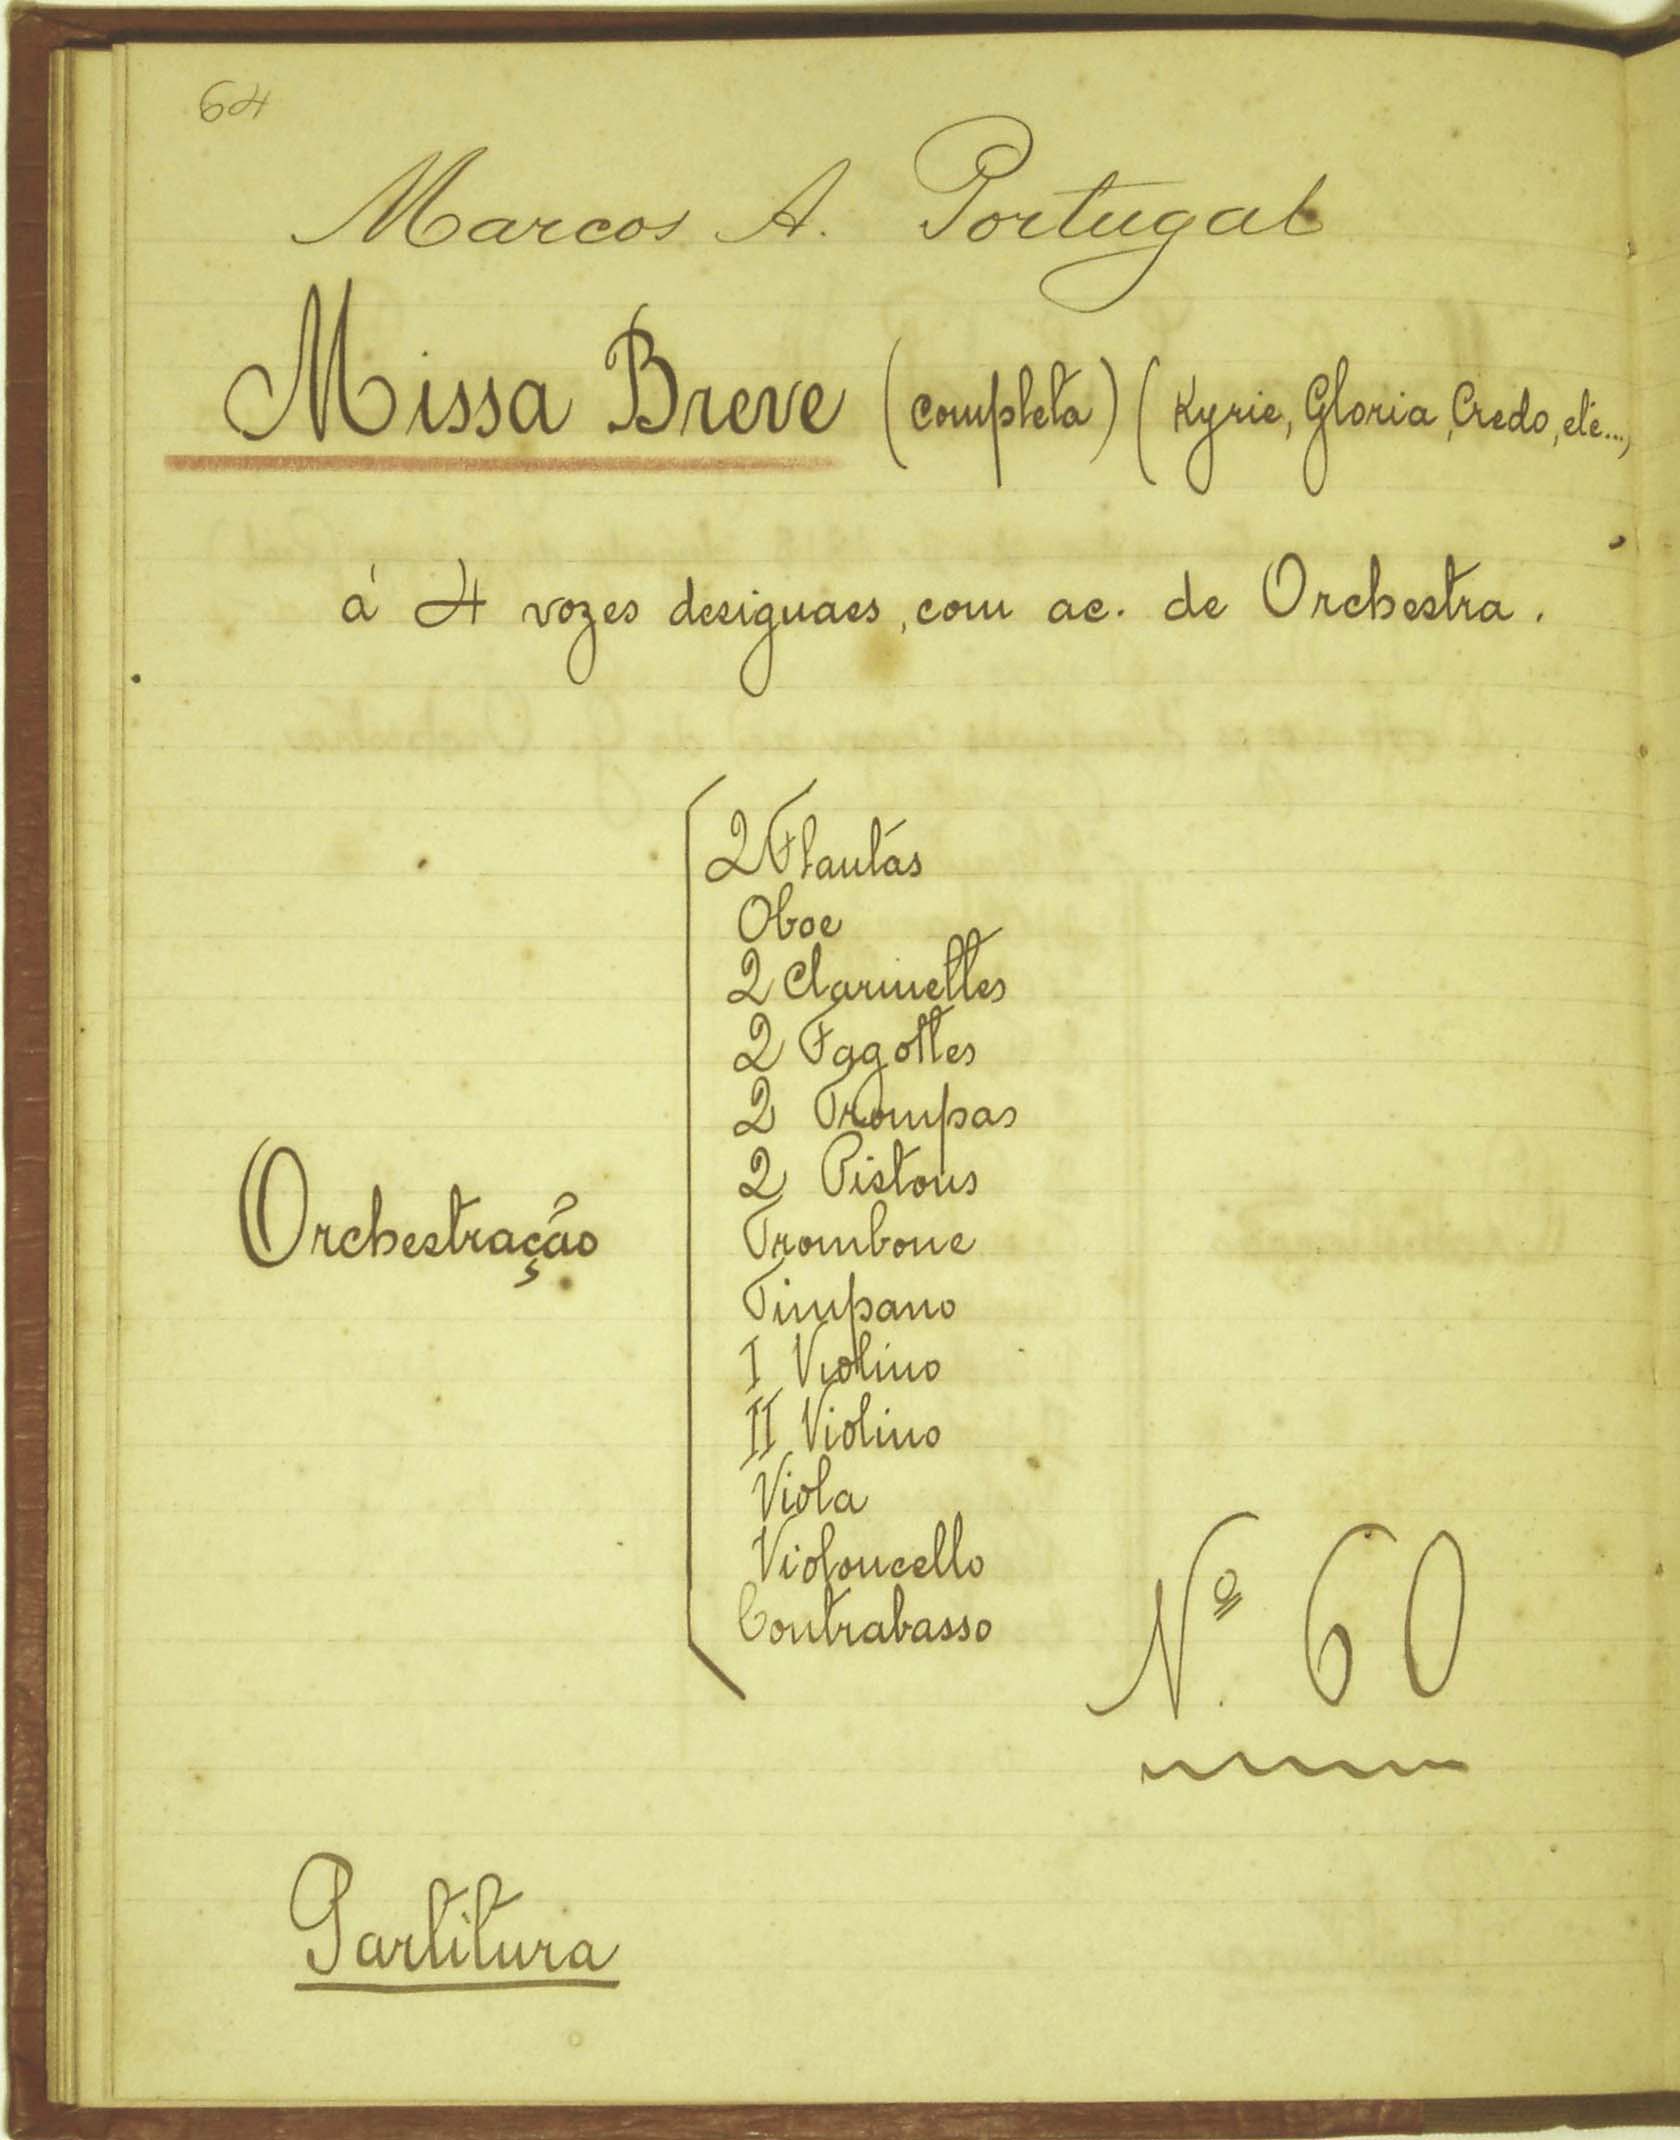 64
Marcos A. Portugal
Missa Breve (completa) (Kyrie, Gloria, Credo, etc...,
á 4 vozes desiguaes, com ac. de Orchestra.
2 Flautas
Oboe
2 Clarinettes
2 Fagottes
2 Trompas
2 Pistons
Orchestração
Trombone
Timpano
I Violino
II Violino
Viola
Violoncello
Contrabasso
Nº. 60
Partitura